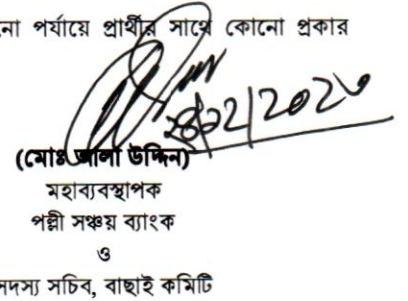 নো পর্যায়ে প্রার্থীর সাথে কোনো প্রকার
(মোঃ আলা উদ্দিন)
মহাব্যবস্থাপক
পল্লী সঞ্চয় ব্যাংক
ও
সদস্য সচিব, বাছাই কমিটি